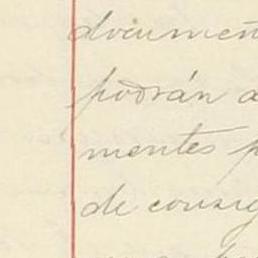 documen
podrán a
mentes p
de consig